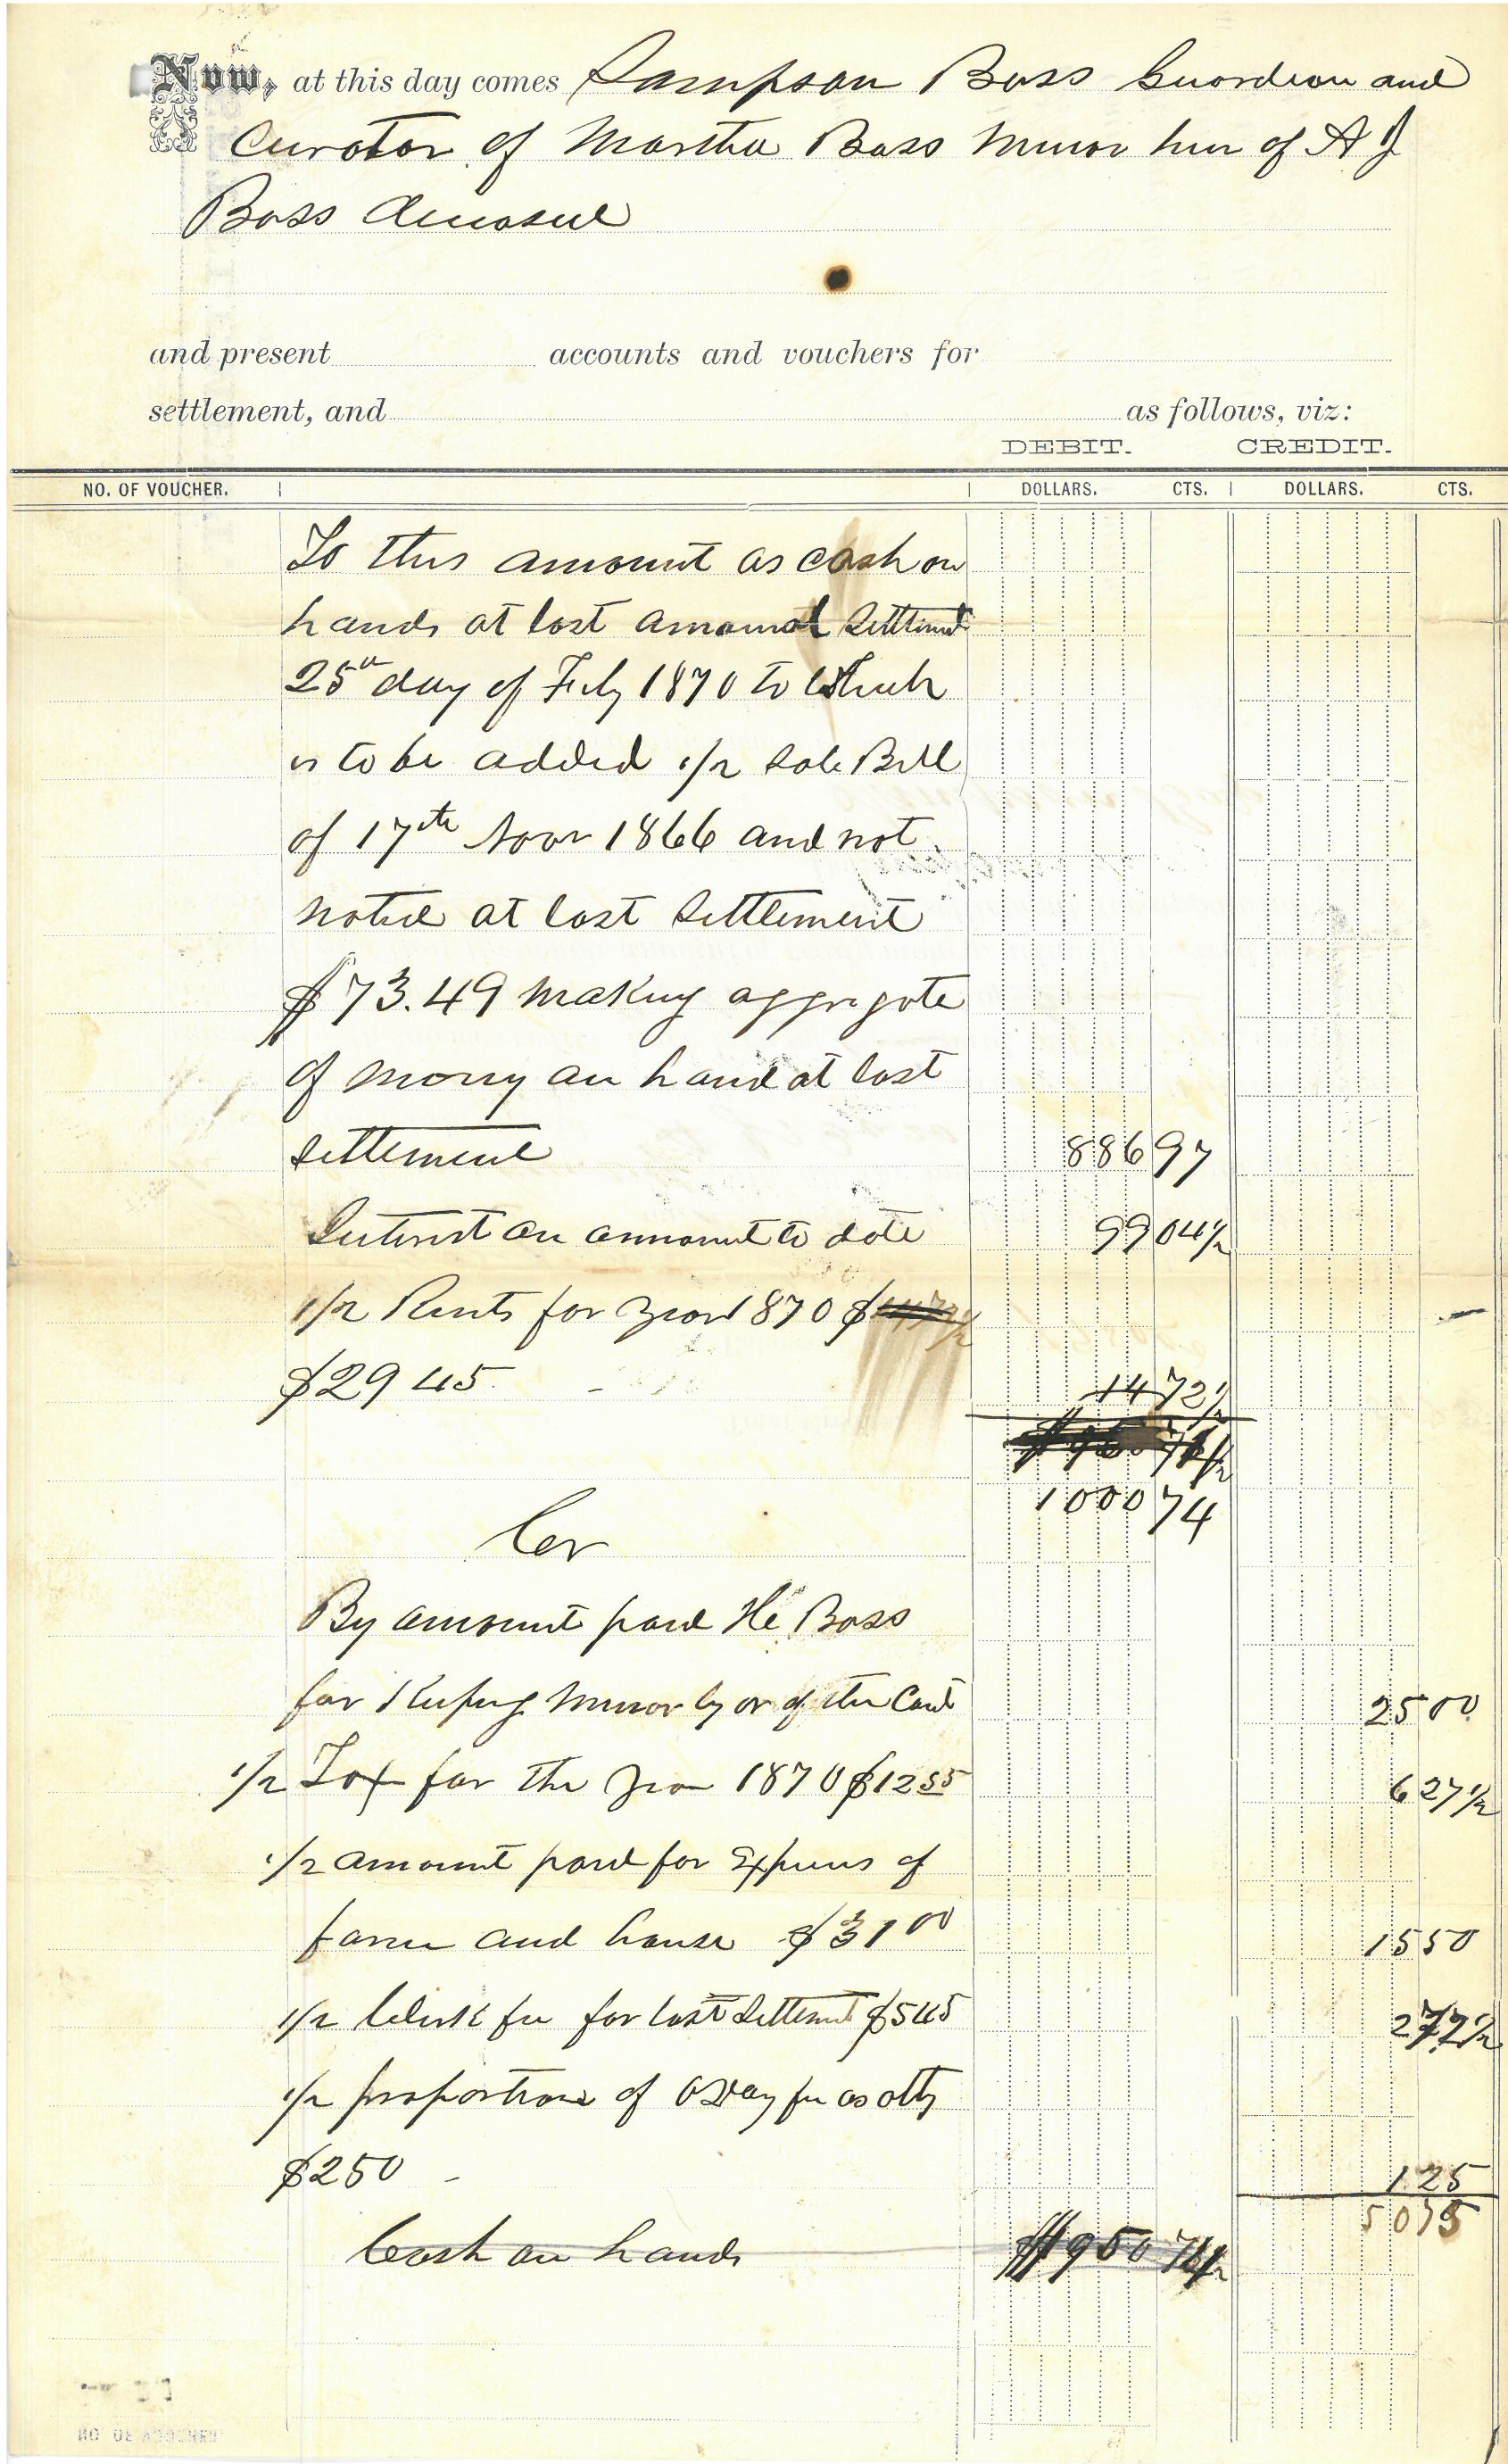 Now, at this day comes Sampson Bass Guardian and
Curator of Martha Bass Minor heir of A J
Bass deceased
and present accounts and vouchers for
settlement, and as follows, viz:
DEBIT. CREDIT.
NO. OF VOUCHER. DOLLARS. CTS. DOLLARS. CTS.
To this amount as cash on
hands at last annual Settlement
25th day of Feby 1870 to which
is to be added 1/2 Sale Bill
of 17th Novr 1866 and not
noted at last Settlement
$73.49 making aggregate
of money on hand at last
Settlement 886 97
Interest on amount to date 99 04 1/2
1/2 Rents for year 1870 $
$29 45 14 72 1/2
1000 74
Cr
By amount paid He Bass
for Keeping minor by or of the Court 25 00
1/2 Tax for the year 1870 $12 55 6 27 1/2
1/2 amount paid for Expenses of
farm and house $31 00 15 50
1/2 Clerk fee for last Settlement $5 45 2 72 1/2
1/2 proportion of fee as atty
$2 50 1 25
50 75
Cash on hands $950 74 1/2
NO OF VOUCHER